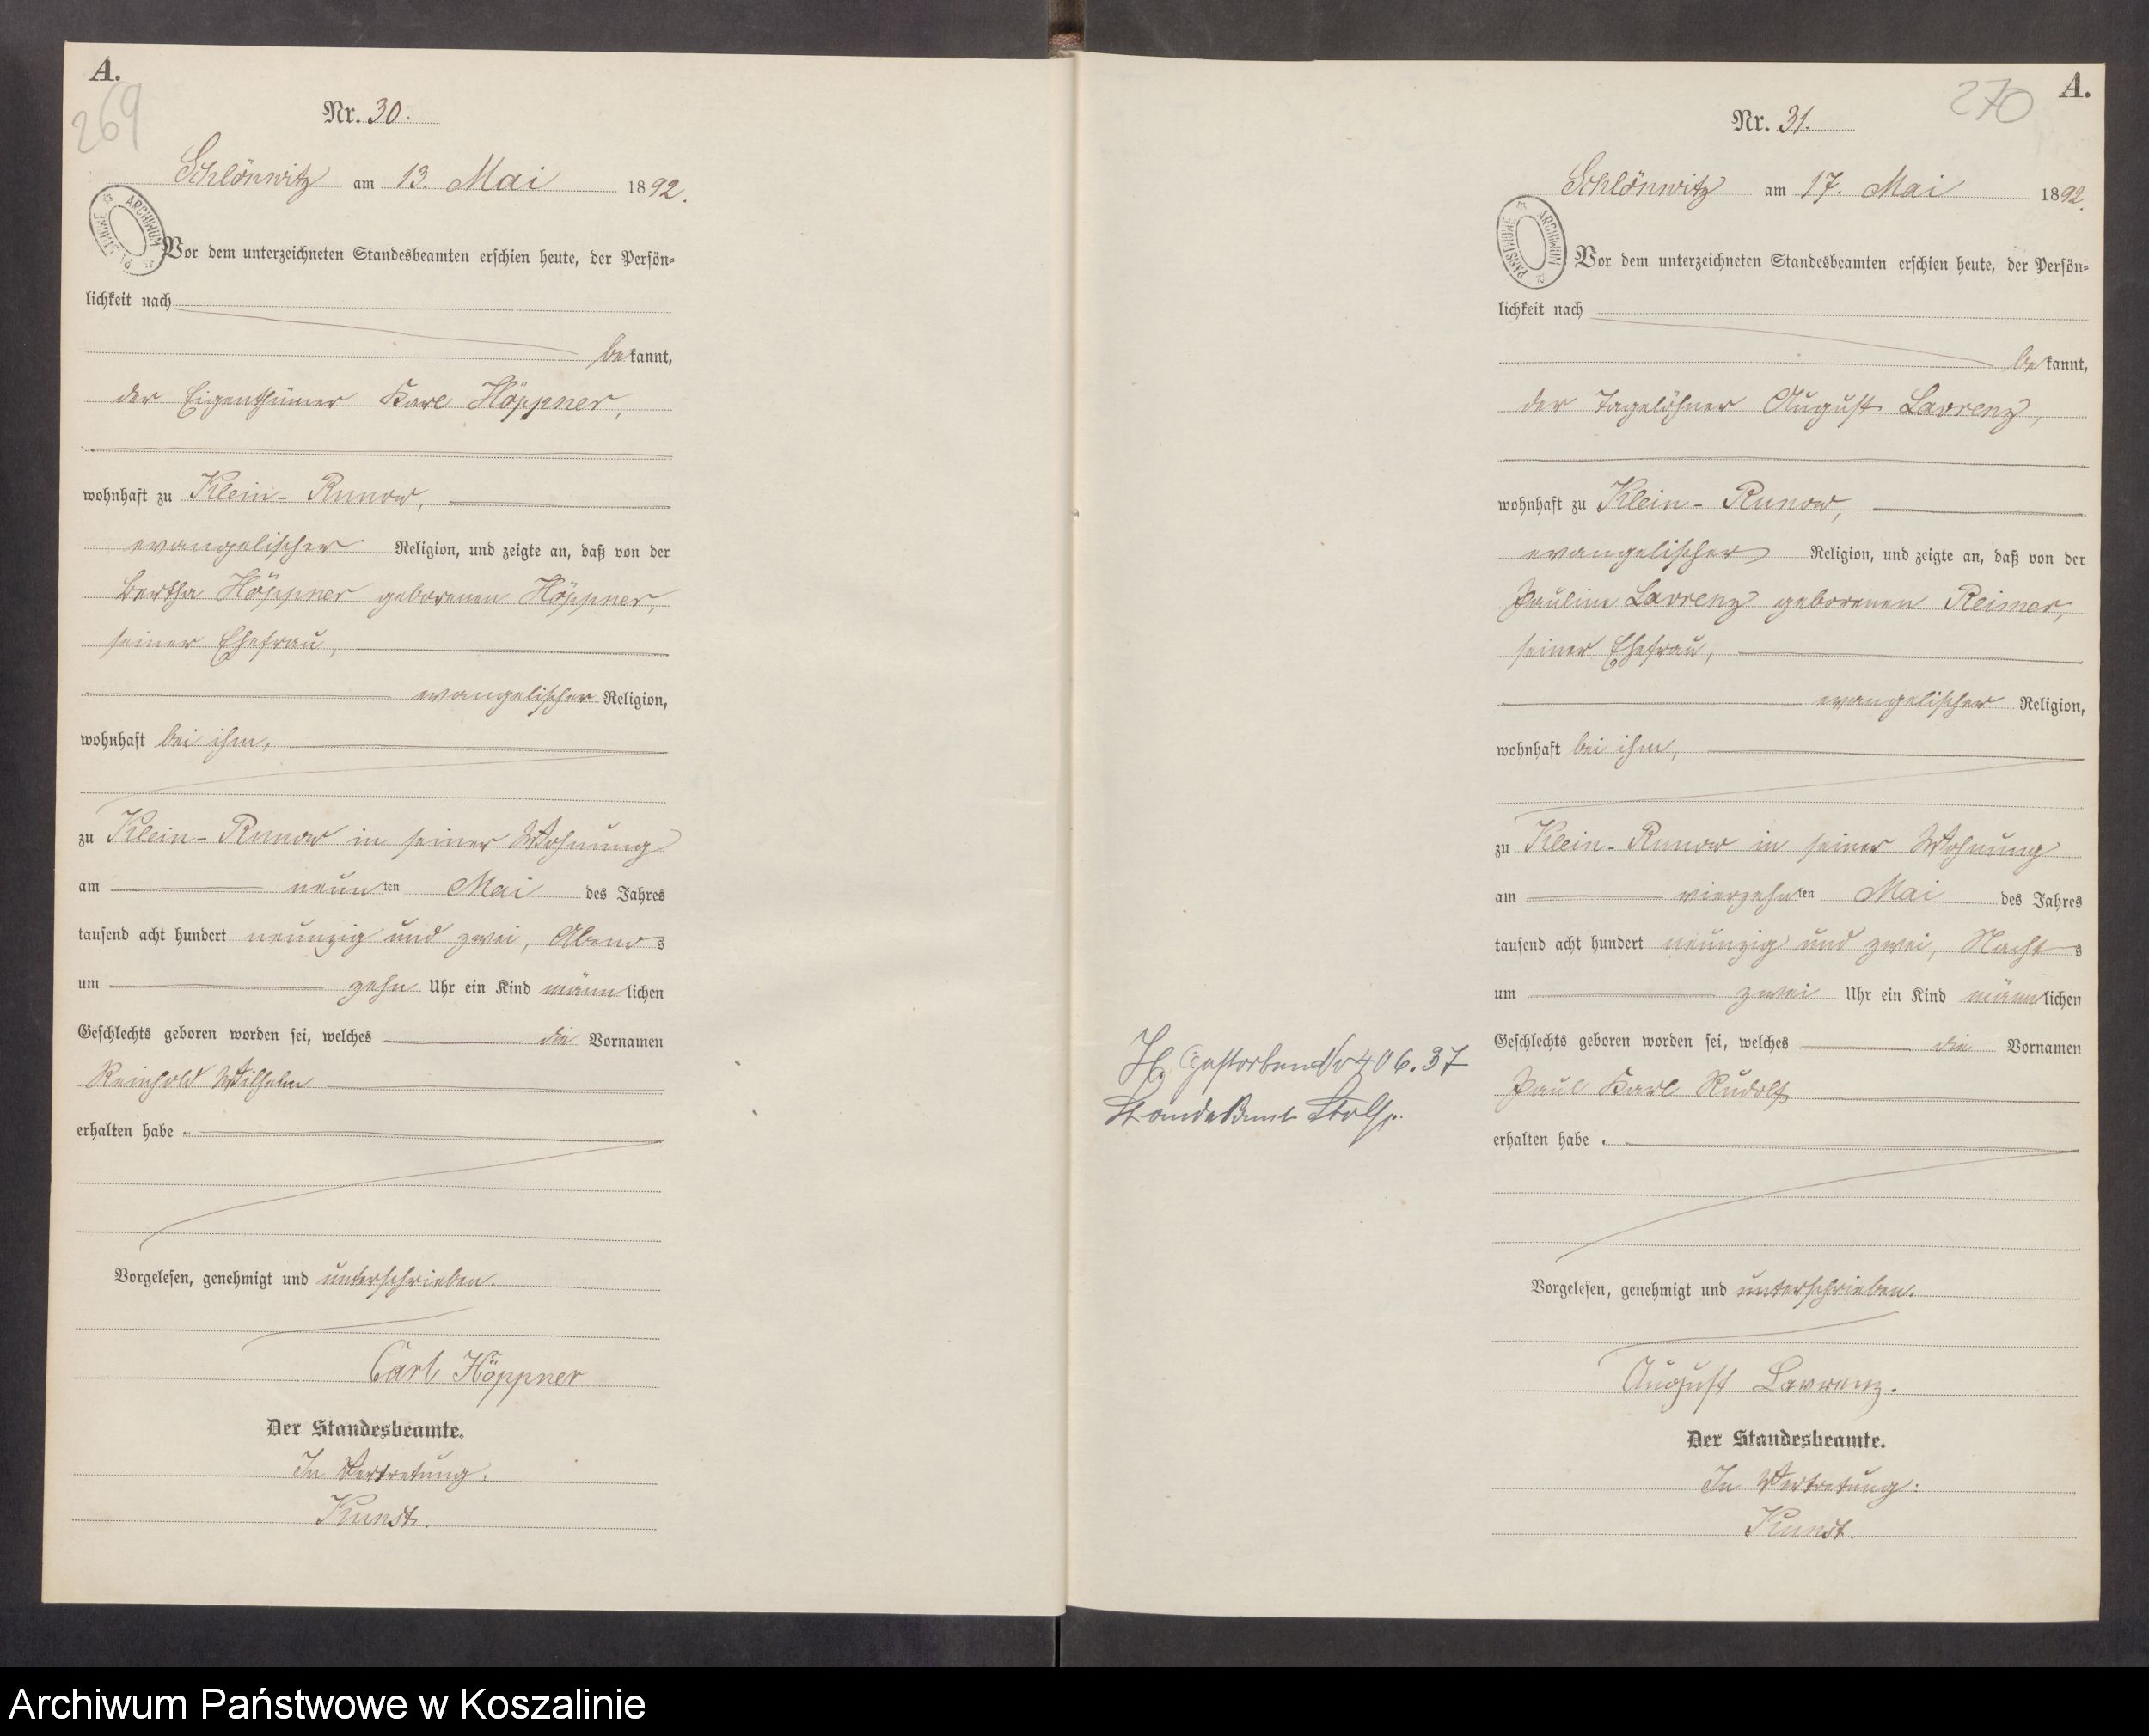 A.
269
Nr. 30.
Schlönwitz am 13. Mai 1892.
ARCHIWUM
Vor dem unterzeichneten Standesbeamten erschien heute, der Persön=
lichkeit nach
bekannt,
der Eigenthümer Karl Höppner,
wohnhaft zu Klein-Runow,
evangelischer Religion, und zeigte an, daß von der
Bertha Höppner geborenen Höppner,
seiner Ehefrau,
evangelischer Religion,
wohnhaft bei ihm,
zu Klein-Runow in seiner Wohnung
am neunten Mai des Jahres
tausend acht hundert neunzig und zwei, Abends
um zehn Uhr ein Kind männlichen
Geschlechts geboren worden sei, welches die Vornamen
Reinhold Wilhelm
erhalten habe.
Vorgelesen, genehmigt und unterschrieben.
Carl Höppner
Der Standesbeamte.
In Vertretung.
Kunst.
A.
270
Nr. 31.
Schlönwitz am 17. Mai 1892.
ARCHIWUM PAŃSTWOWE
Vor dem unterzeichneten Standesbeamten erschien heute, der Persön=
lichkeit nach
bekannt,
der Tagelöhner August Lavrenz,
wohnhaft zu Klein-Runow,
evangelischer Religion, und zeigte an, daß von der
Pauline Lavrenz geborenen Reimer,
seiner Ehefrau,
evangelischer Religion,
wohnhaft bei ihm,
zu Klein-Runow in seiner Wohnung
am vierzehnten Mai des Jahres
tausend acht hundert neunzig und zwei, Nachts
um zwei Uhr ein Kind männlichen
Geschlechts geboren worden sei, welches die Vornamen
Paul Karl Rudolf
erhalten habe.
Vorgelesen, genehmigt und unterschrieben.
August Lavrenz.
Der Standesbeamte.
In Vertretung:
Kunst.
Gestorben Nr 406.37
Standesamt Stolp.
Archiwum Państwowe w Koszalinie